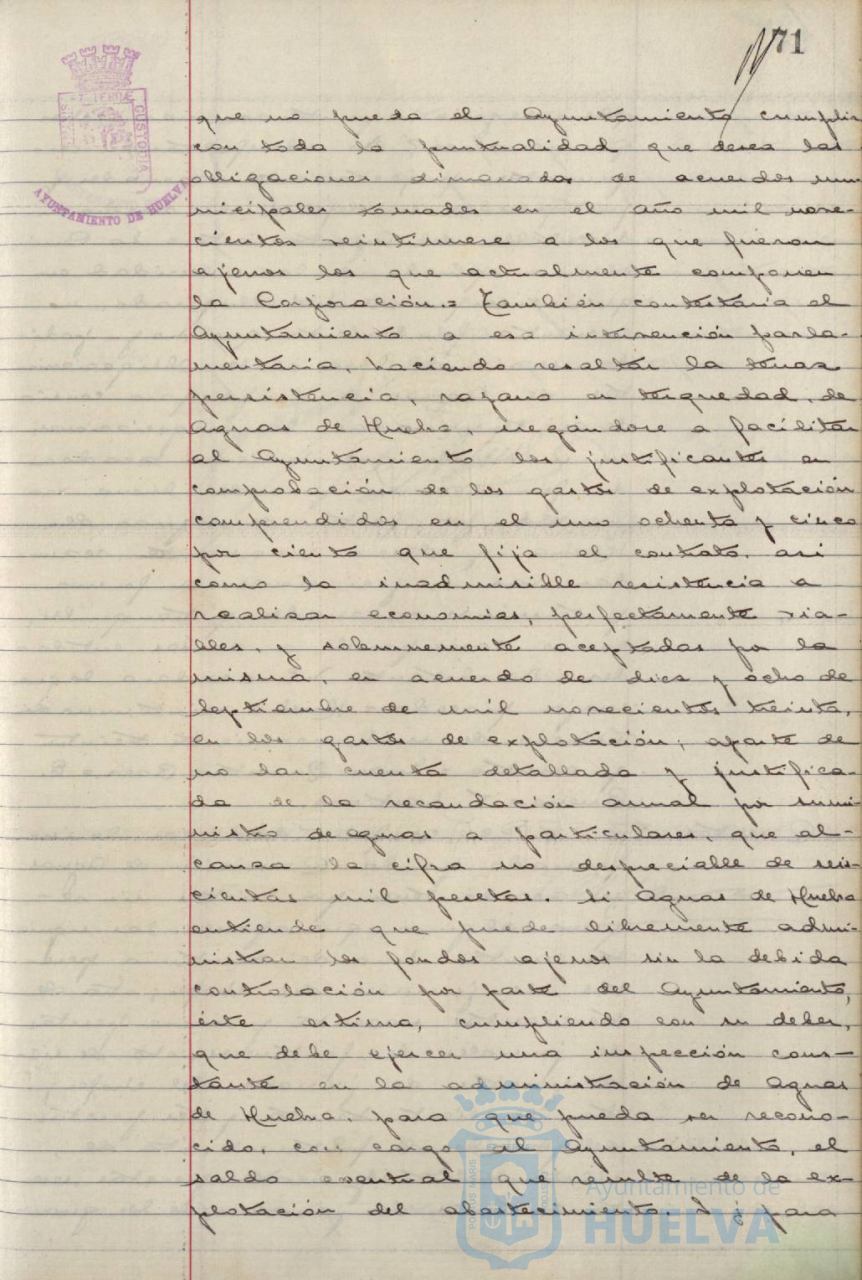 71
PORTUS MARIS
ET TERRÆ
CUSTODIA
AYUNTAMIENTO DE HUELVA
que no pueda el Ayuntamiento cumplir
con toda la puntualidad que desea las
obligaciones dimanadas de acuerdos mu-
nicipales tomados en el año mil nove-
cientos veintinueve a los que fueron
ajenos los que actualmente componen
la Corporación.= También contestaría el
Ayuntamiento a esa intervención parla-
mentaria, haciendo resaltar la tenaz
persistencia, rayana en terquedad, de
Aguas de Huelva, negándose a facilitar
al Ayuntamiento los justificantes en
comprobación de los gastos de explotación
comprendidos en el uno ochenta y cinco
por ciento que fija el contrato, así
como la inadmisible resistencia a
realizar economías, perfectamente via-
bles, y solemnemente aceptadas por la
misma, en acuerdo de diez y ocho de
Septiembre de mil novecientos treinta,
en los gastos de explotación; aparte de
no dar cuenta detallada y justifica-
da de la recaudación anual por sumi-
nistro de aguas a particulares, que al-
canza la cifra no despreciable de seis-
cientas mil pesetas. Si Aguas de Huelva
entiende que puede libremente admi-
nistrar los fondos ajenos sin la debida
controlación por parte del Ayuntamiento,
éste estima, cumpliendo con su deber,
que debe ejercer una inspección cons-
tante en la administración de Aguas
de Huelva, para que pueda ser recono-
cido, con cargo al Ayuntamiento, el
saldo eventual que resulte de la ex-
plotación del abastecimiento. Y para
Ayuntamiento de
HUELVA